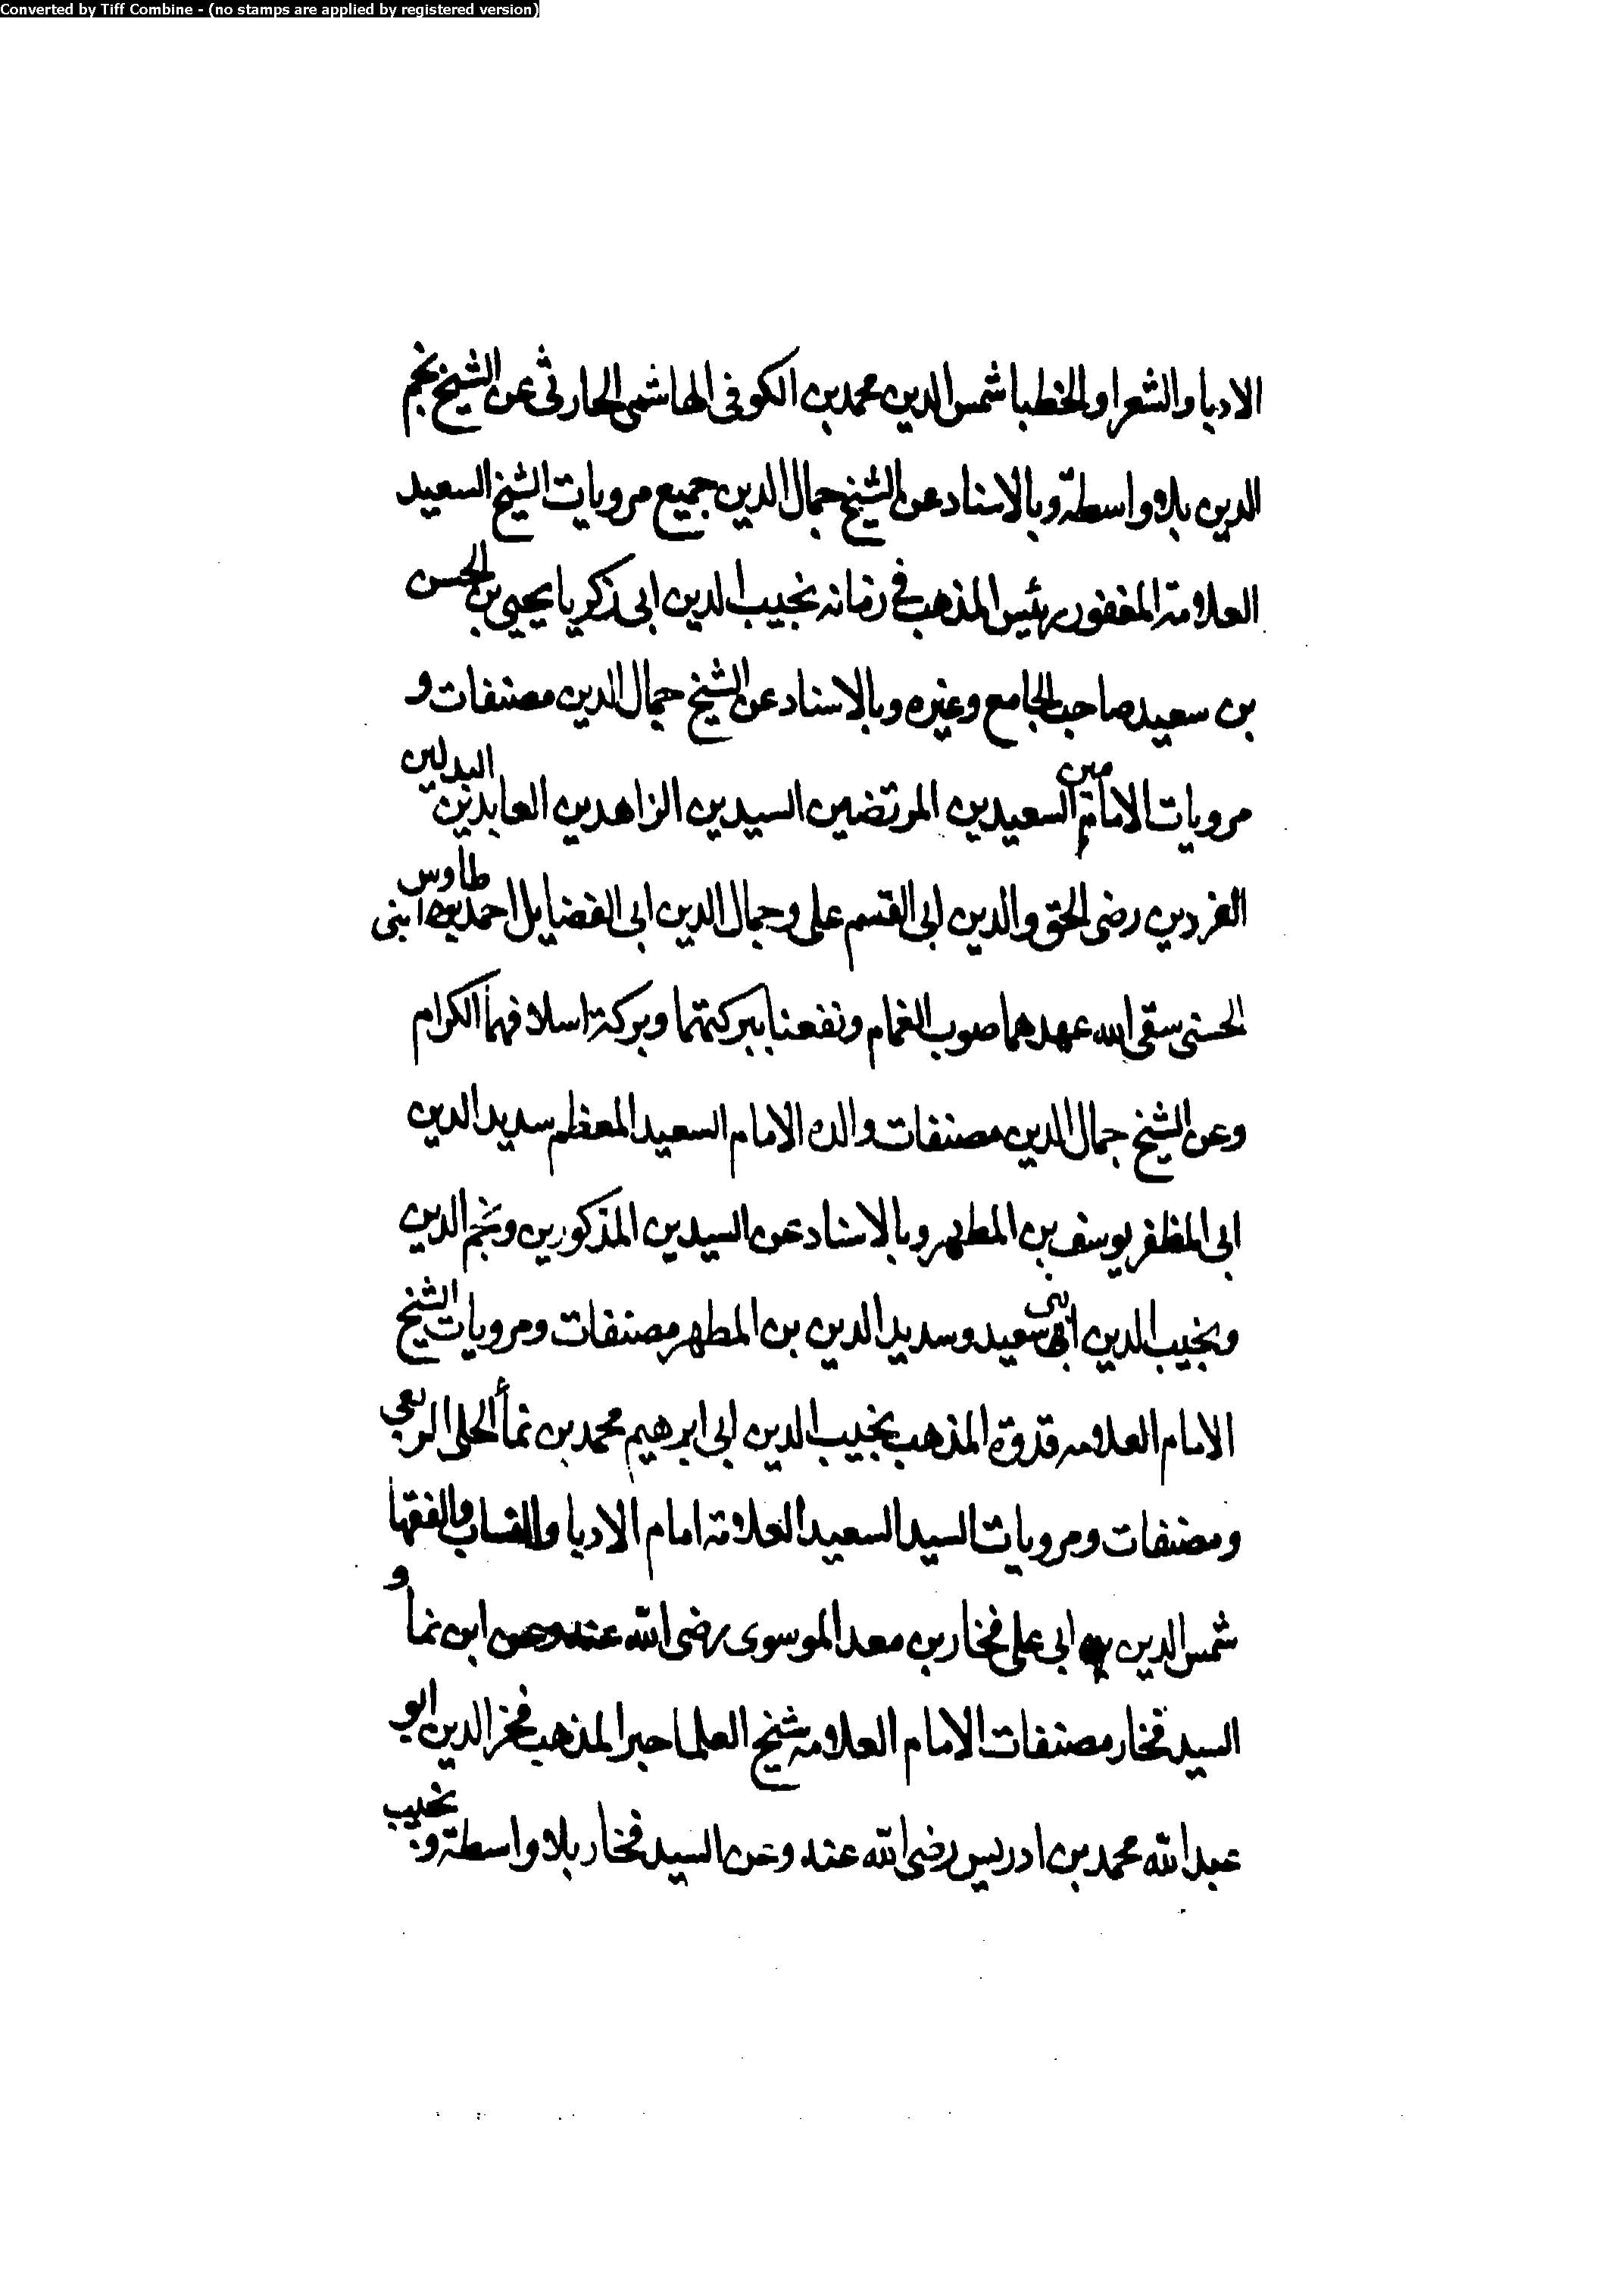 Converted by Tiff Combine - (no stamps are applied by registered version)
الادبا والشعرا والخطبا شمس الدين محمد بن الكوفى الهاشمى الحارثى عن الشيخ نجم
الدين بلا واسطة وبالاسناد عن الشيخ جمال الدين جميع مرويات الشيخ السعيد
العلامة المغفور رئيس المذهب في زمانه نجيب الدين ابى زكريا يحيى بن الحسن
بن سعيد صاحب الجامع وغيره وبالاسناد عن الشيخ جمال الدين مصنفات و
مرويات الامامين السعيدين المرتضين السيدين الزاهدين العابدين البدلين
الفردين رضى الحق والدين ابى القسم على وجمال الدين ابى الفضايل احمد ابنى طاوس
الحسنى سقى الله عهدهما صوب الغمام ونفعنا ببركتهما وبركة اسلافهما الكرام
وعن الشيخ جمال الدين مصنفات والده الامام السعيد المعظم سديد الدين
ابى المظفر يوسف بن المطهر وبالاسناد عن السيدين المذكورين ونجم الدين
ونجيب الدين ابنى سعيد وسديد الدين بن المطهر مصنفات ومرويات الشيخ
الامام العلامه قدوة المذهب نجيب الدين ابى ابرهيم محمد بن نما الحلى الربعي
ومصنفات ومرويات السيد السعيد العلامة امام الادبا والنساب والفقها
شمس الدين ابى على فخار بن معد الموسوى رضى الله عنه وعن ابن نما و
السيد فخار مصنفات الامام العلامه شيخ العلما حبر المذهب فخر الدين ابو
عبد الله محمد بن ادريس رضى الله عنه وعن السيد فخار بلا واسطة و نجيب